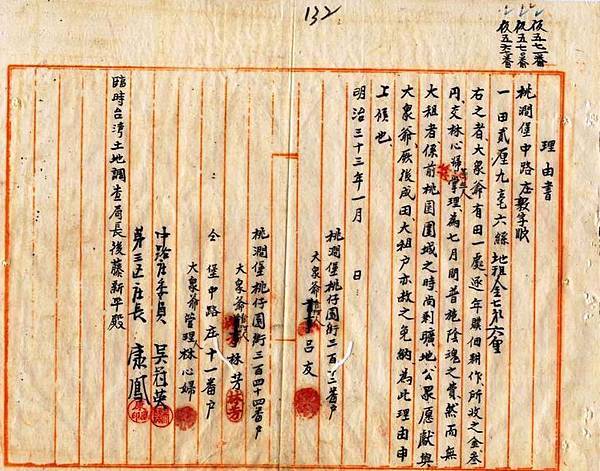 132
假五七一番
假五七〇番
假五六二番
理由書
桃澗堡中路庄
一田貳厘九毫六絲 地租金七
右之者大眾爺有田一處逐年贌佃耕作所收之金叁
円交林心婦掌理為七月間普施陰魂之費然而無
大租者係前桃園圍城之時尚剩曠地公眾愿獻與
大眾爺厥後成田大租戶亦赦之免納為此理由申
上候也
明治三十三年一月 日
桃澗堡桃仔園街三百
大眾爺 呂友
桃澗堡桃仔園街三百四十四番戶
大眾爺 林芳
仝堡中路庄十一番戶
大眾爺管理人林心婦
中路庄委員 吳冠英
第三區庄長 康鳳
臨時台湾土地調查局長後藤新平殿